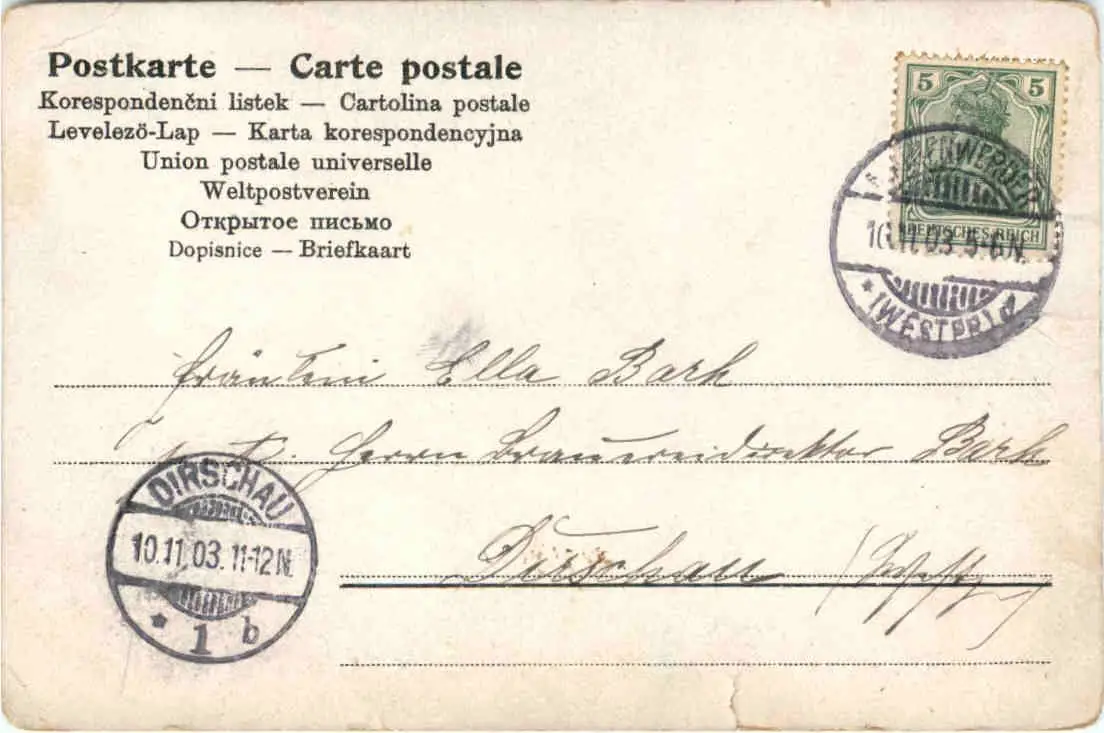 Postkarte — Carte postale
Korespondenčni listek — Cartolina postale
Levelező-Lap — Karta korespondencyjna
Union postale universelle
Weltpostverein
Открытое письмо
Dopisnice — Briefkaart
5 5
DEUTSCHES REICH
10.11.03. 5-6N.
* (WESTPR) d
Fräulein Ella Barh
Herrn Brauereidirektor Barh
Dirschau
DIRSCHAU
10.11.03. 11-12N.
* 1 b